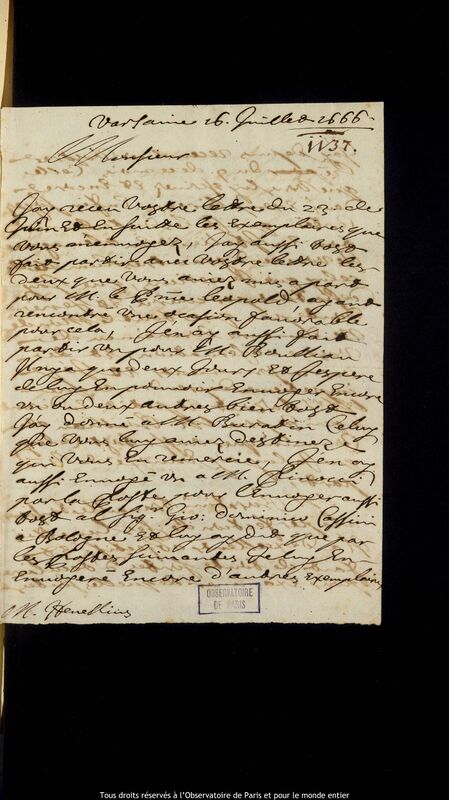 Varsavie 16. Juillet 1666
1137.
Monsieur
J'ay receu Vostre lettre du 23e de
Juin Et Ensuite les Exemplaires que
Vous m'envoyez, J'ay aussi tost
fait partir avec Vostre lettre les
deux que Vous aviez mis a part
pour M. le Pme Leopold ayant
rencontré une ocasion favorable
pour cela, J'en ay assi fait
partir un pour M. Boulliau
Il n'y a que deux Jours Et J'espere
de luy En pouvoir Envoyer Encore
un ou deux autres bien tost
J'ay donné a M. Burattin Celuy
que Vous luy aviez destiné
qui Vous En remercie, J'en ay
aussi Envoyé un a M.
par la poste pour l'Envoyer aussi
tost al Sigr Gio: Dominico Cassini
a Bologne Et luy ay dit que par
les postes suivantes Je luy En
Envoyeré Encore d'autres Exemplaires
M. Hevellius
OBSERVATOIRE
DE PARIS
Tous droits réservés à l'Observatoire de Paris et pour le monde entier